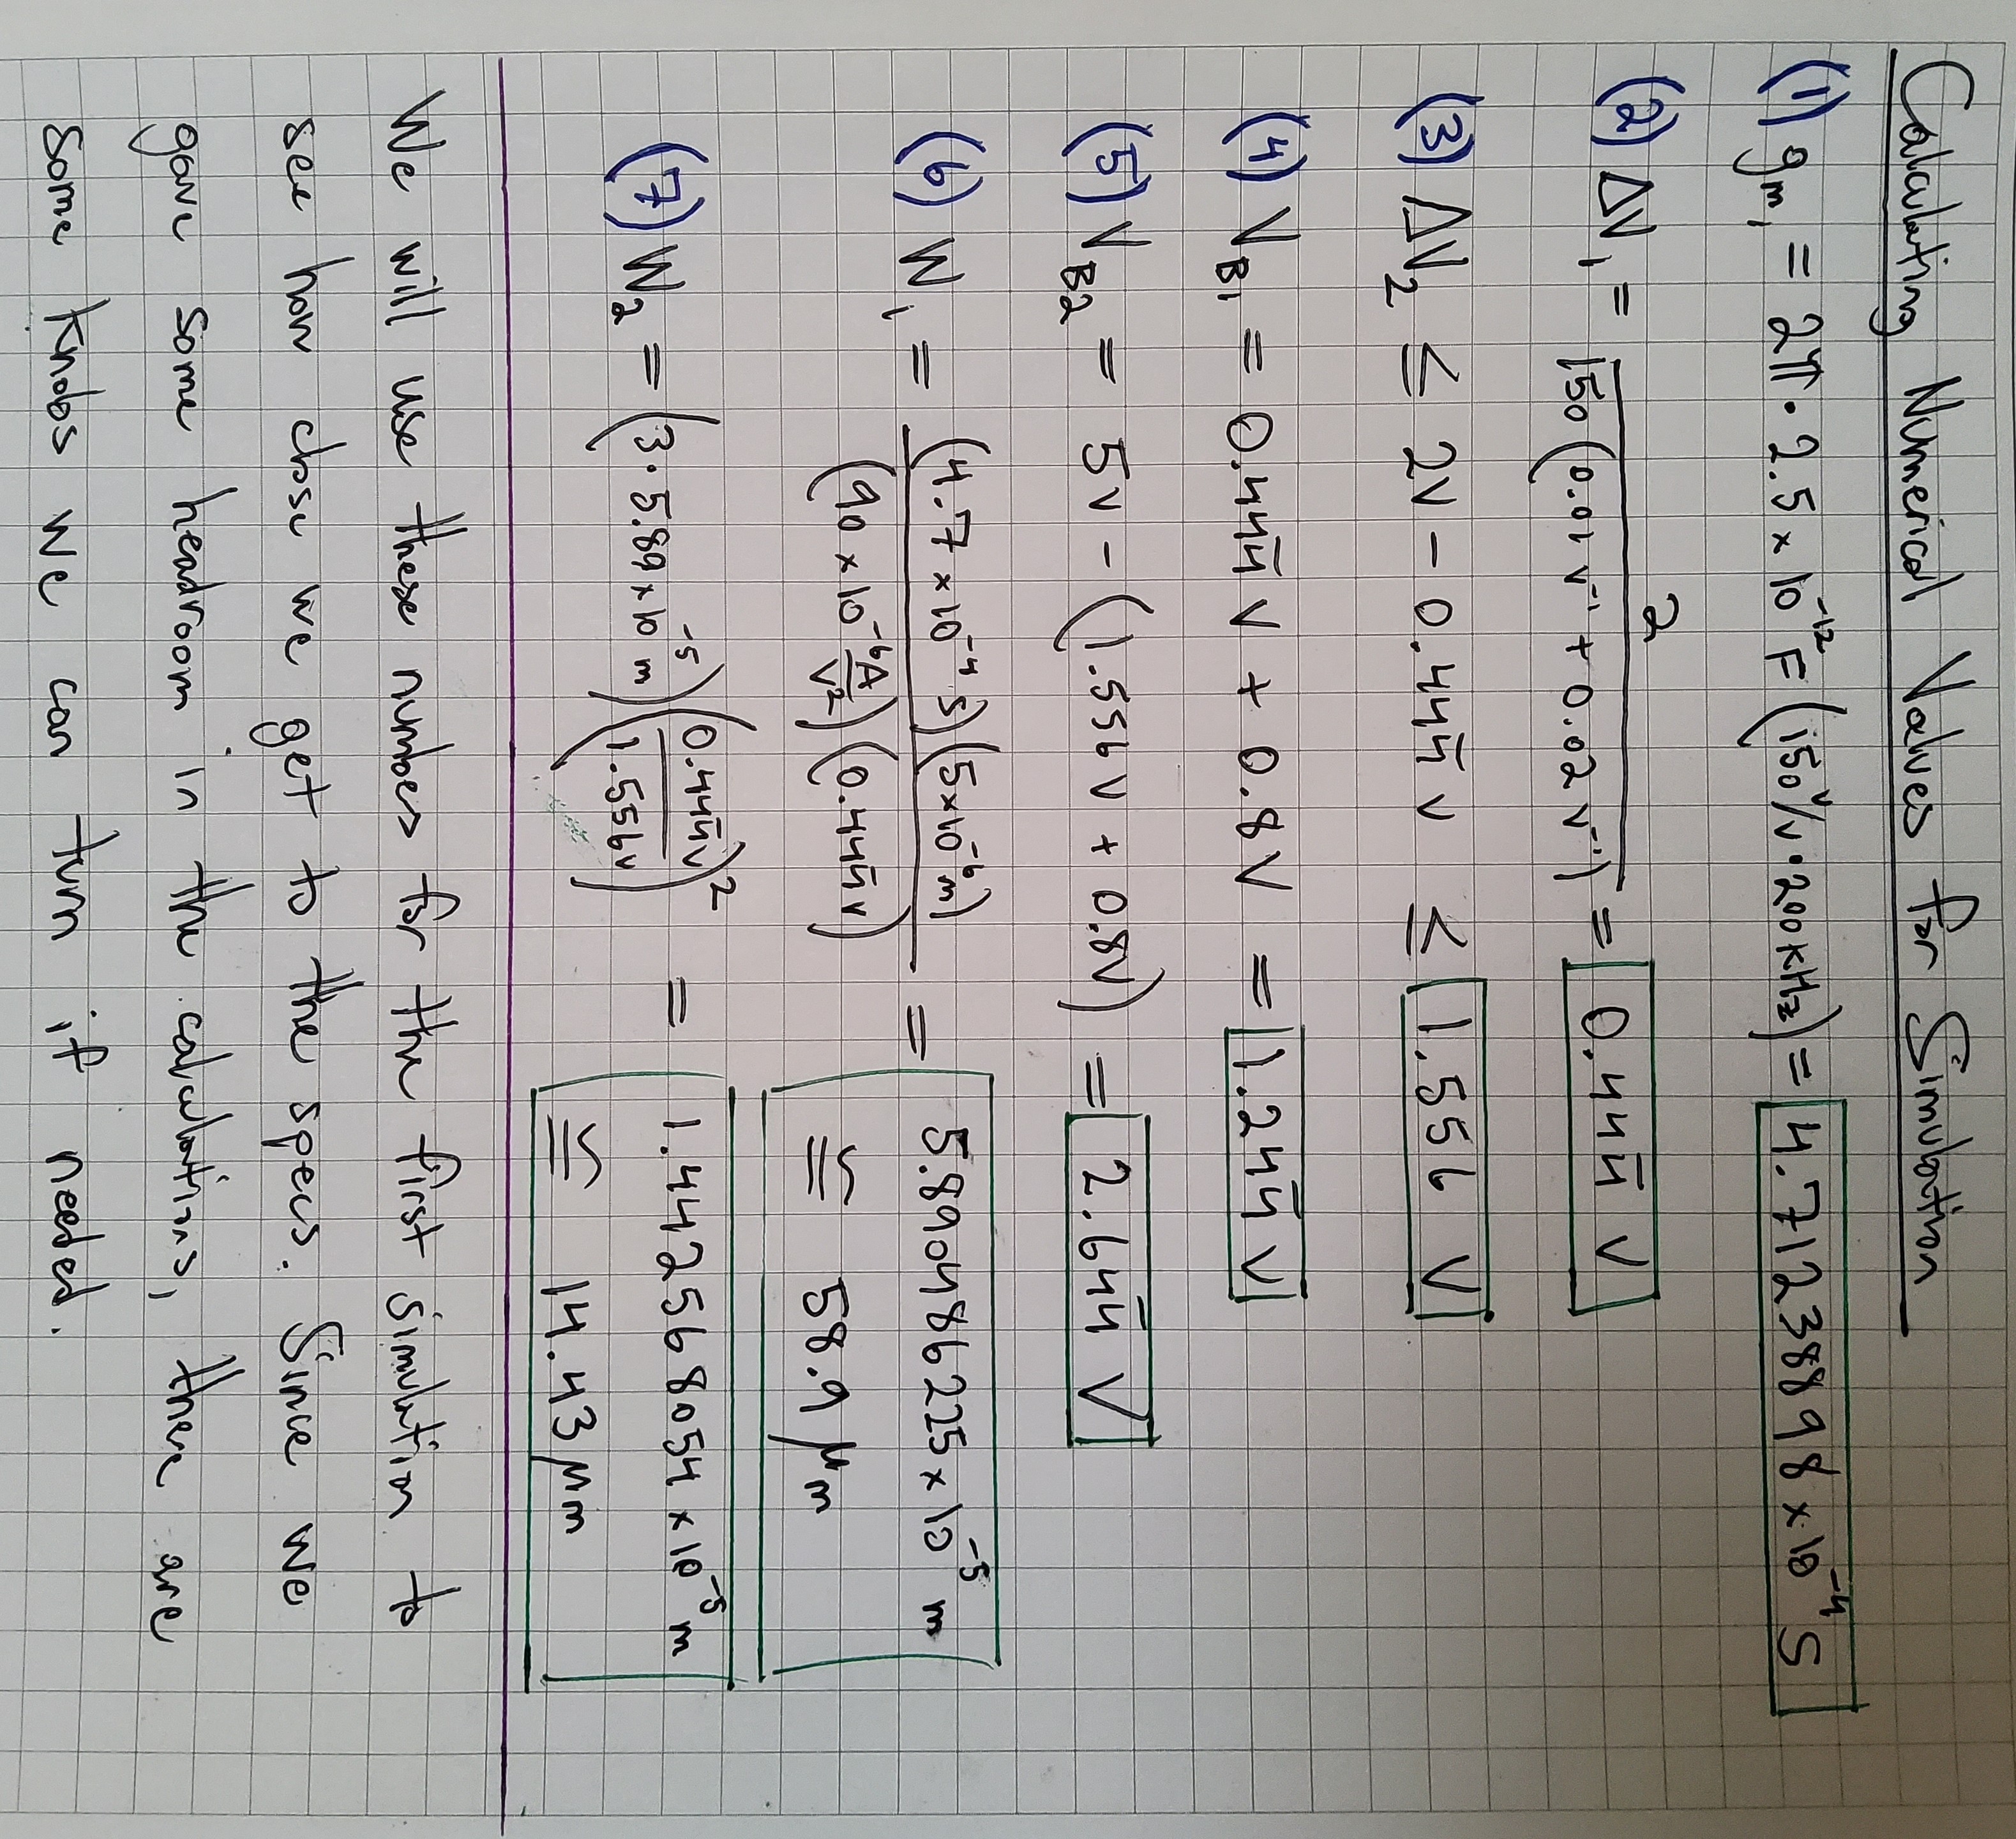 Calculating Numerical Values for Simulation
(1) gm₁ = 2π · 2.5 × 10⁻¹² F (150 V/V · 200 kHz) = 4.71238898 × 10⁻⁴ S
(2) ΔV₁ = 2 / (150 (0.01 V⁻¹ + 0.02 V⁻¹)) = 0.444̄ V
(3) ΔV₂ ≤ 2V − 0.444̄ V ≤ 1.556 V
(4) V_B1 = 0.444̄ V + 0.8 V = 1.244̄ V
(5) V_B2 = 5V − (1.556 V + 0.8V) = 2.644̄ V
(6) W₁ = (4.7 × 10⁻⁴ S)(5 × 10⁻⁶ m) / ((90 × 10⁻⁶ A/V²)(0.444̄ V)) = 5.890486225 × 10⁻⁵ m
≅ 58.9 μm
(7) W₂ = (3 · 5.89 × 10⁻⁵ m)(0.444̄ V / 1.556 V)² = 1.442568054 × 10⁻⁵ m
≅ 14.43 μm
We will use these numbers for the first simulation to
see how close we get to the specs. Since we
gave some headroom in the calculations, there are
some knobs we can turn if needed.